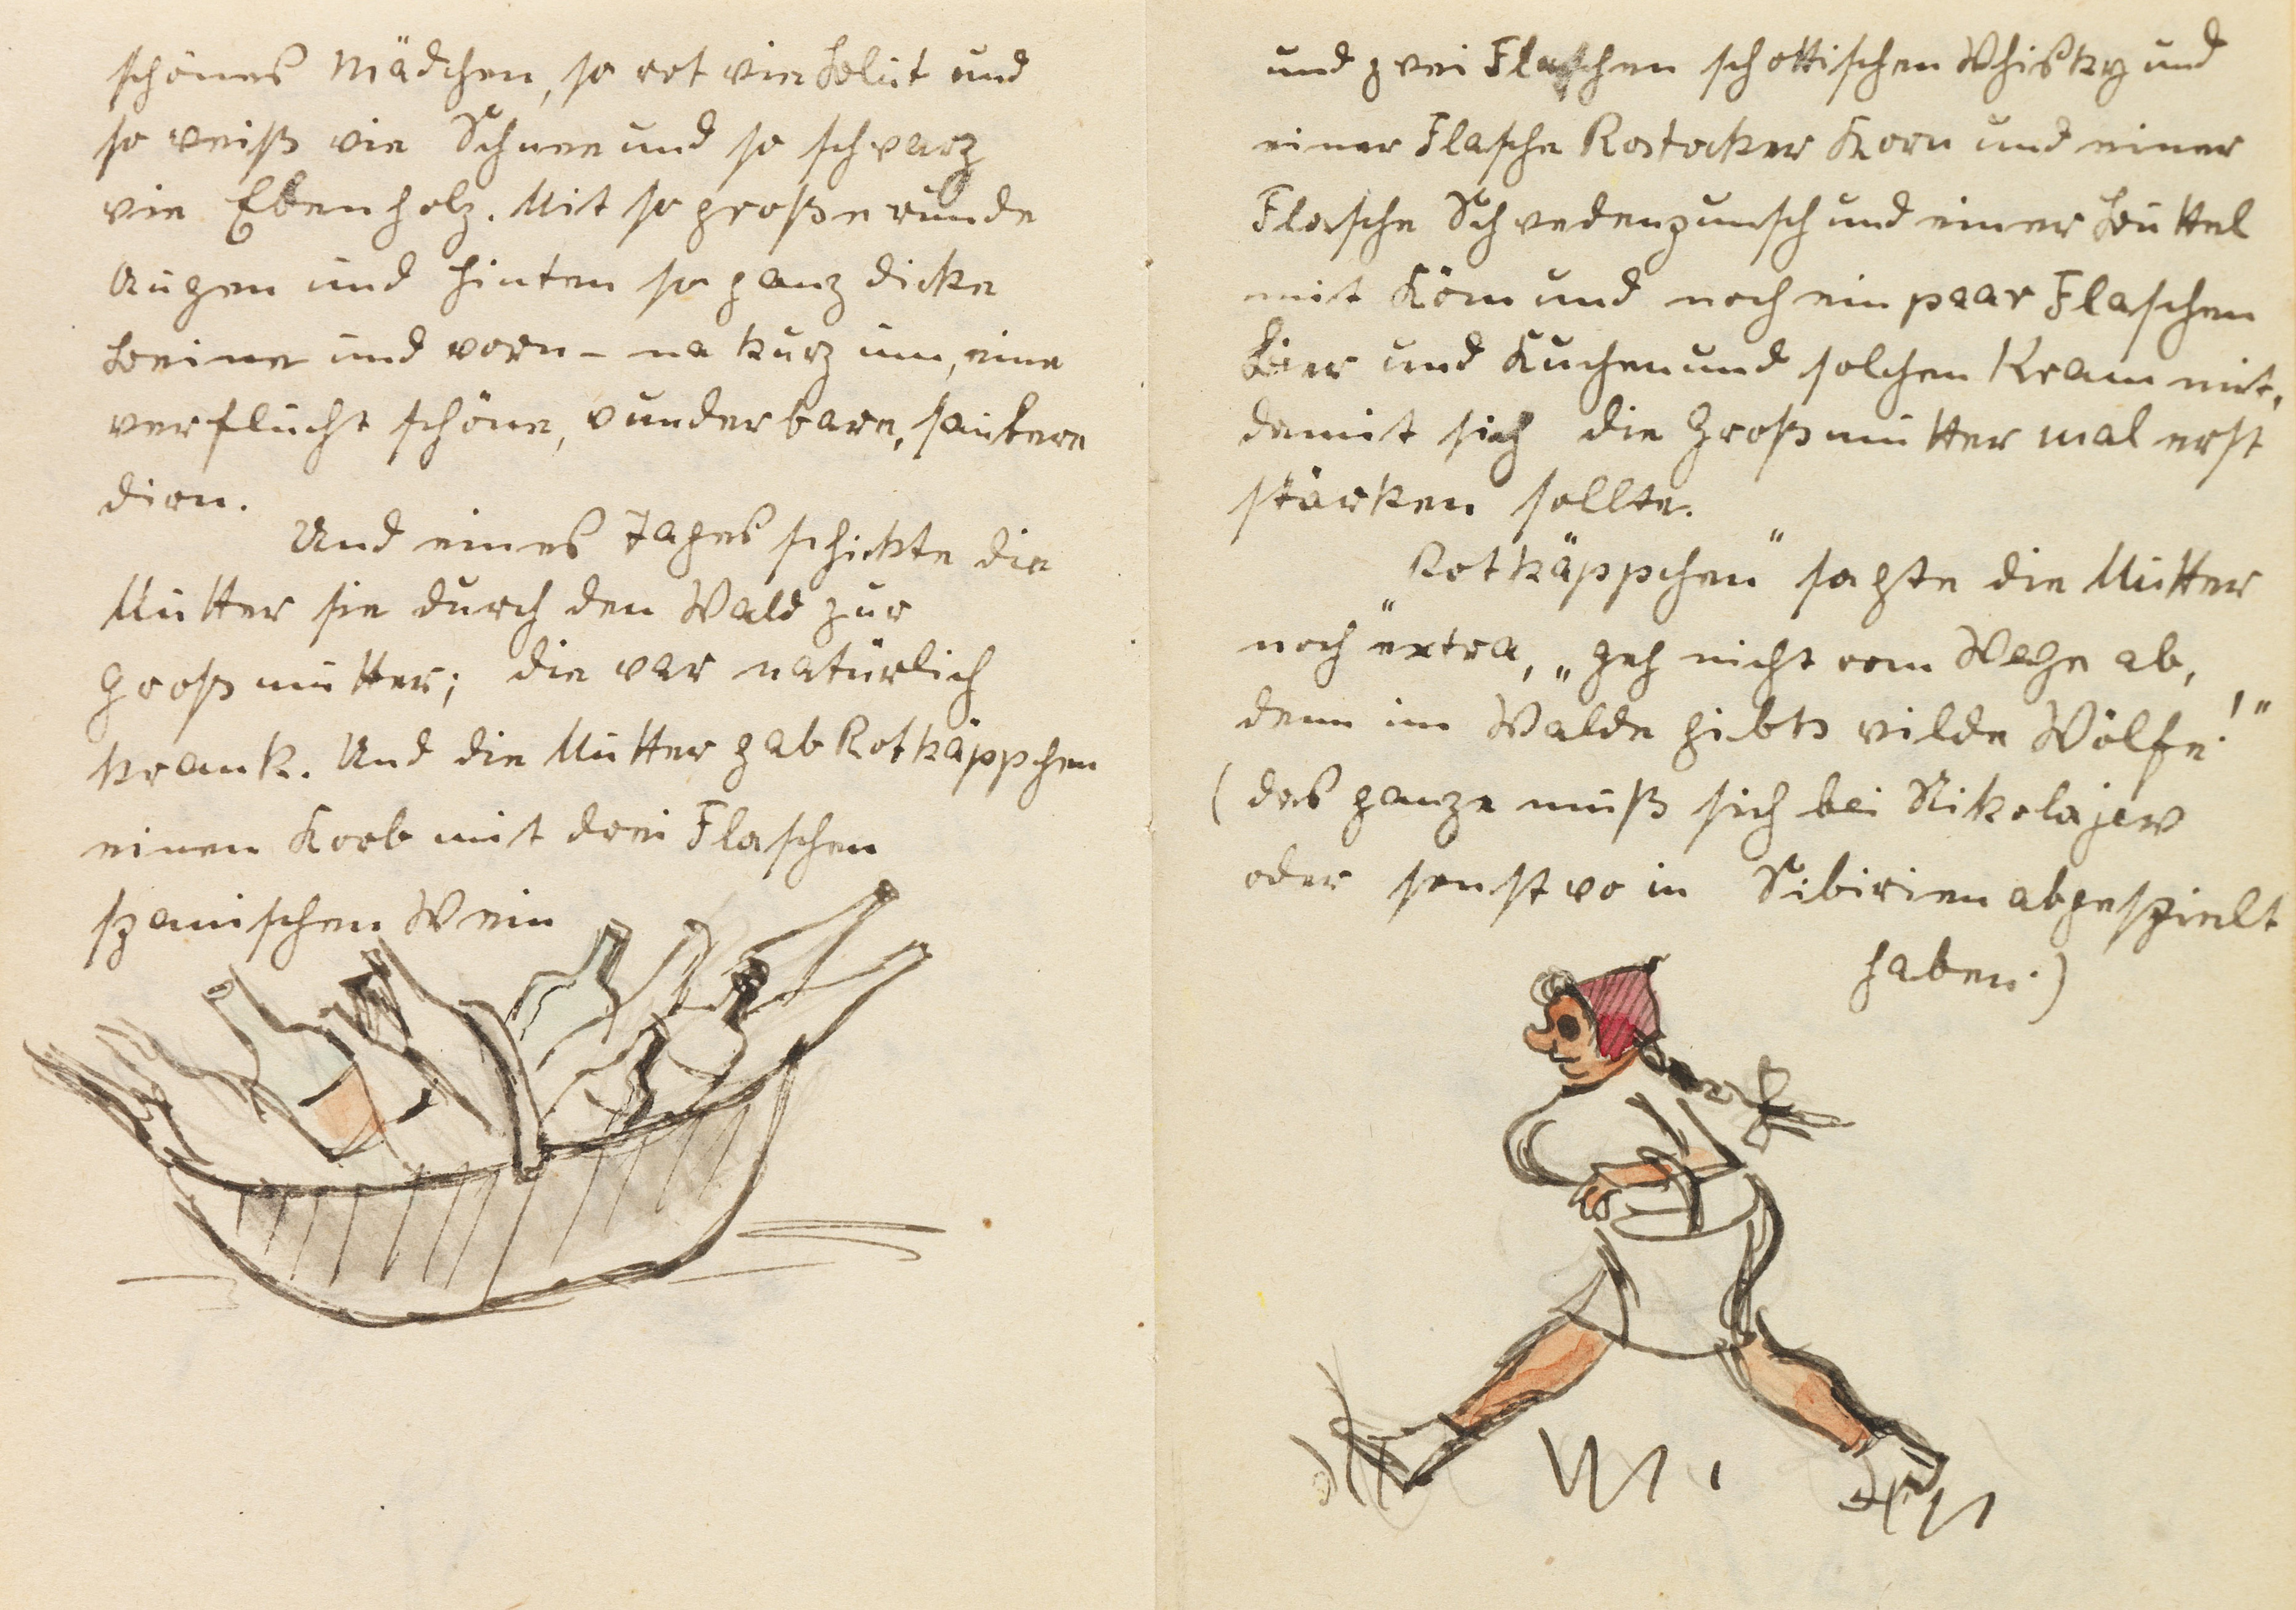 schönes Mädchen, so rot wie Blut und
so weiß wie Schnee und so schwarz
wie Ebenholz. Mit so große runde
Augen und hinten so ganz dicke
Beine und vorn – na kurz um, eine
verflucht schöne, wunderbare, saubere
dirn.
Und eines Tages schickte die
Mutter sie durch den Wald zur
Großmutter; die war natürlich
krank. Und die Mutter gab Rotkäppchen
einen Korb mit drei Flaschen
spanischen Wein
und zwei Flaschen schottischen Whisky und
einer Flasche Rostocker Korn und einer
Flasche Schwedenpunsch und einer Buttel
mit Köm und noch ein paar Flaschen
Bier und Kuchen und solchen Kram mit,
damit sich die Großmutter mal erst
stärken sollte.
„Rotkäppchen" sagte die Mutter
noch extra, „geh nicht vom Wege ab,
denn im Walde gibts wilde Wölfe!"
(das ganze muß sich bei Nikolajew
oder sonst wo in Sibirien abgespielt
haben.)